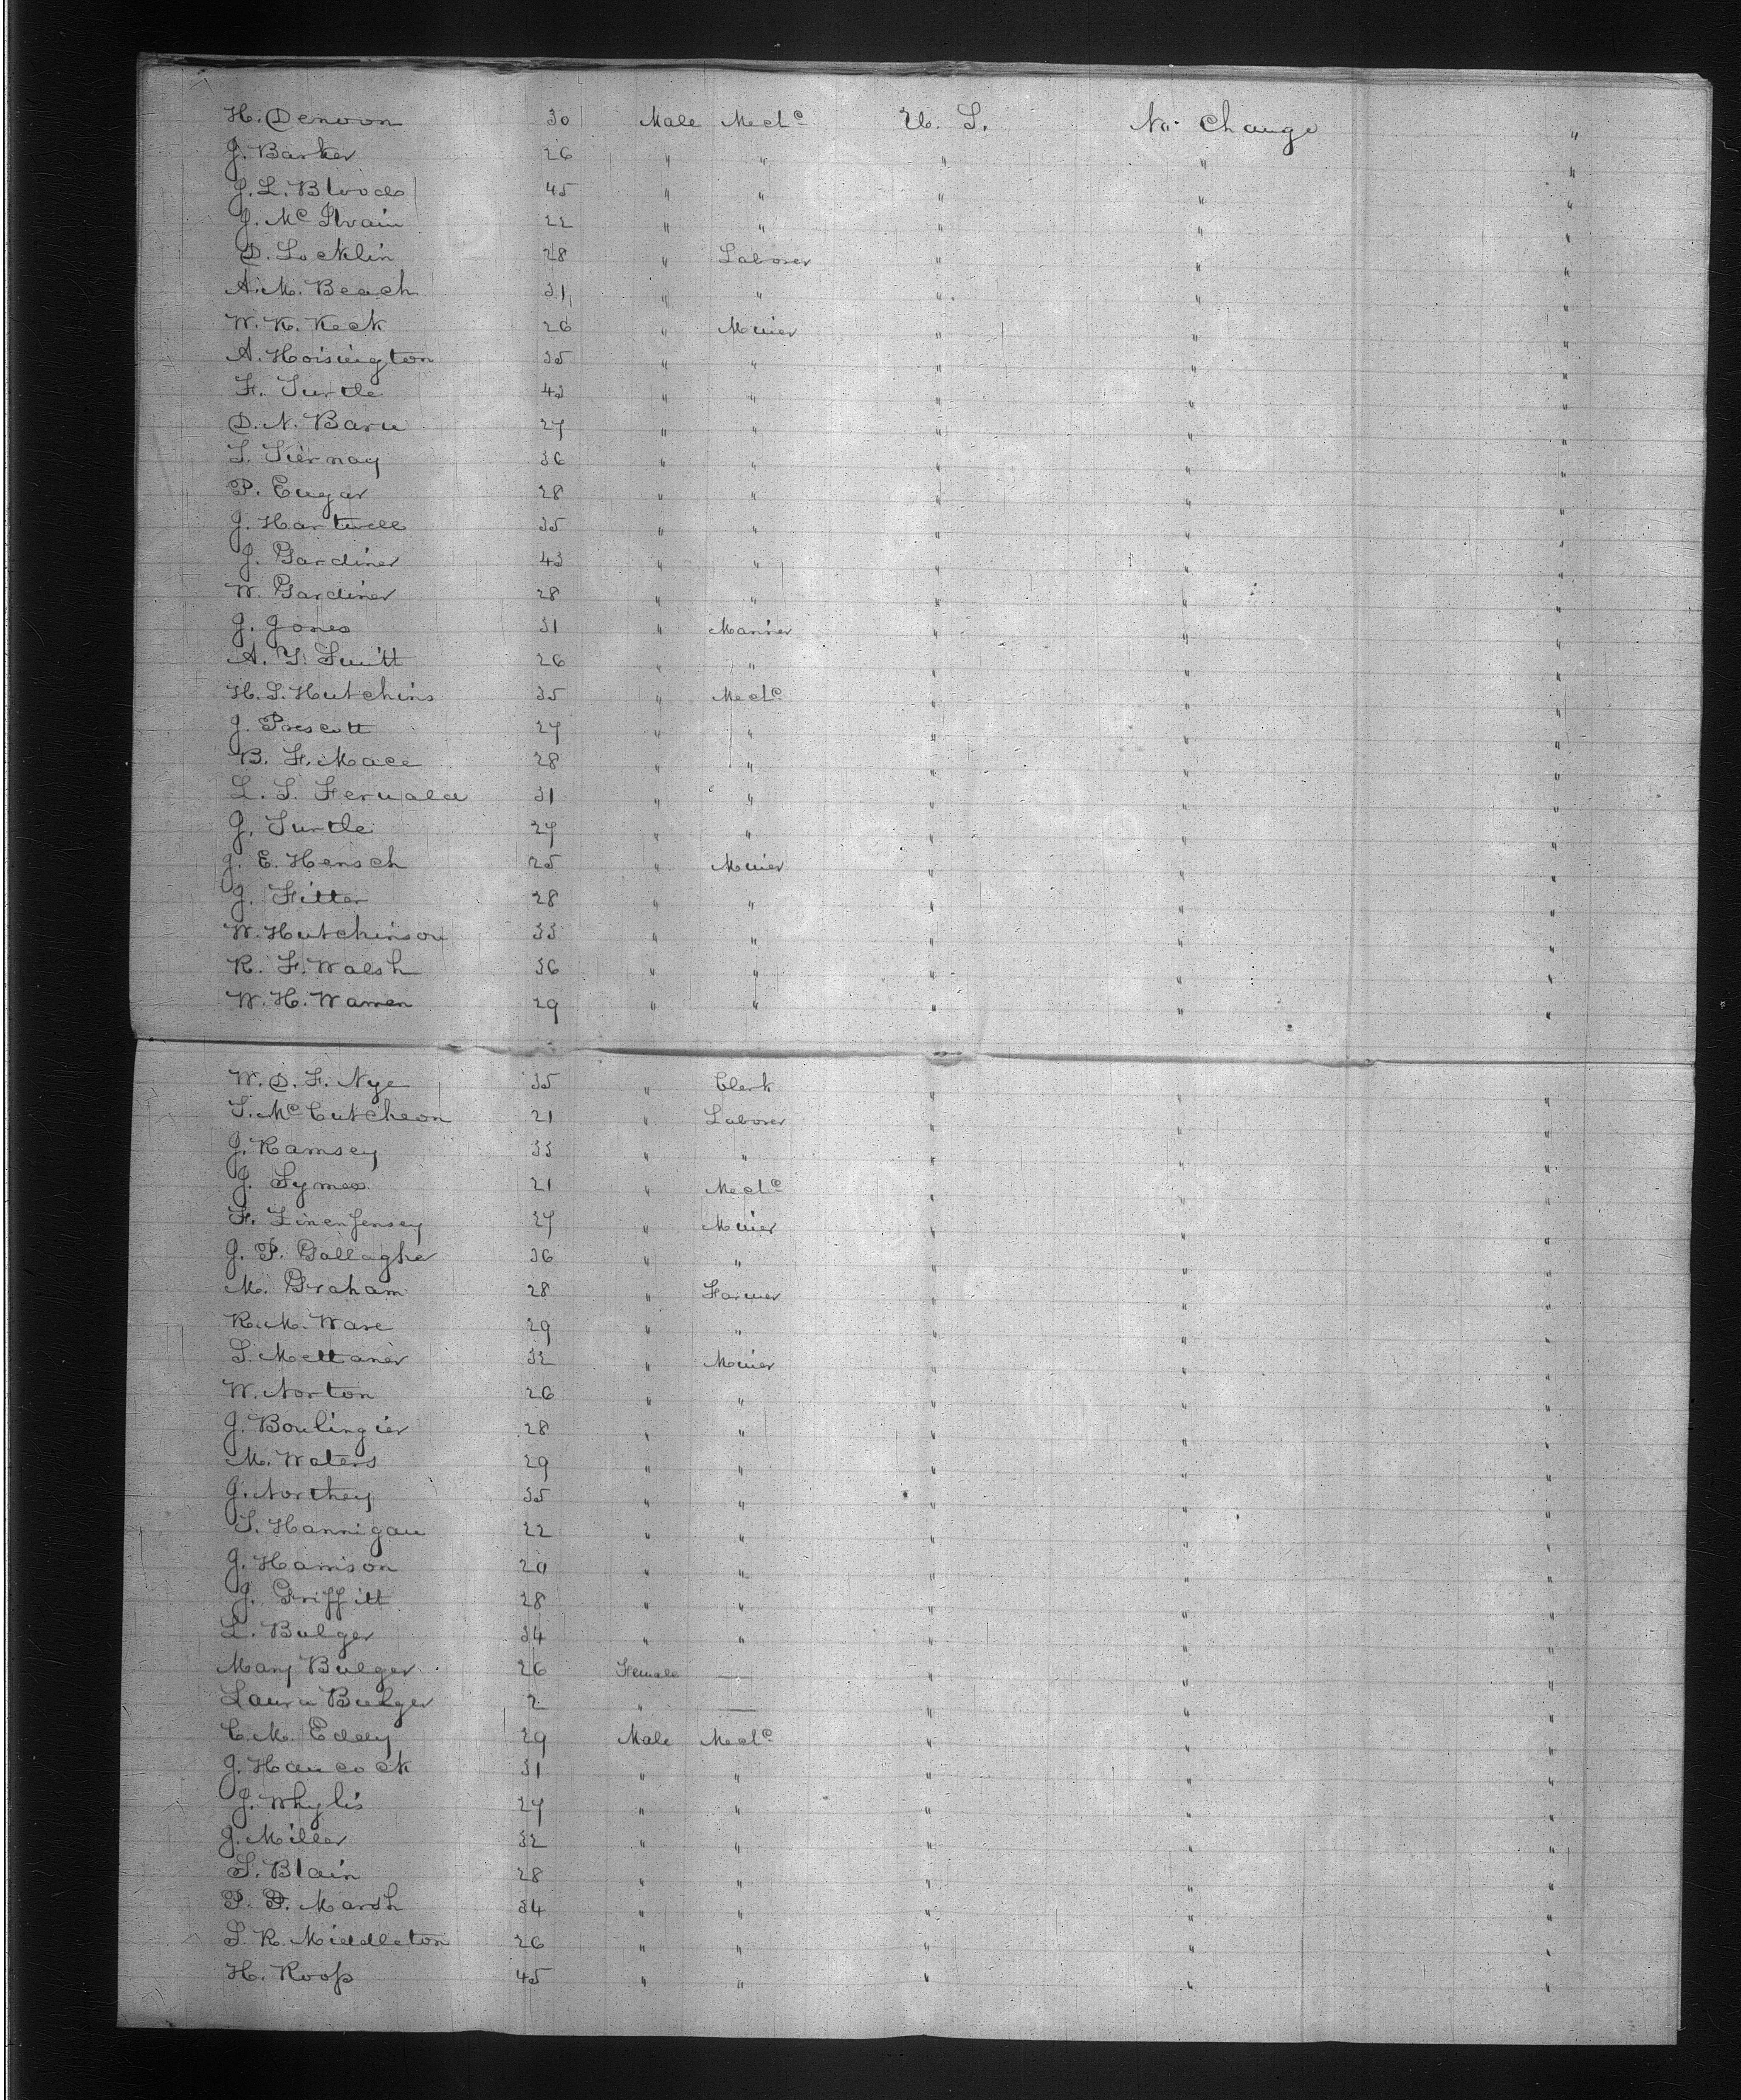 H. Denoon 30 Male Mecl.c U. S. No Change "
J. Barker 26 " " " " "
J. L. Bloods 45 " " " " "
J. Mc Ilvain 22 " " " " "
D. Locklin 28 " Laborer " " "
A. M. Beach 31 " " " " "
W. K. Keck 26 " Minier " " "
A. Hoisington 35 " " " " "
F. Turtle 43 " " " " "
D. N. Baru 27 " " " " "
T. Tiernay 36 " " " " "
P. Eugar 28 " " " " "
J. Hartwell 35 " " " " "
J. Gardiner 43 " " " " "
W. Gardiner 28 " " " " "
J. Jones 31 " Marrier " " "
A. T. 26 " " " " "
H. S. Hutchins 35 " Mecl.c " " "
J. Prescott 27 " " " " "
B. F. Mace 28 " " " " "
L. S. Fernald 31 " " " " "
J. Turtle 27 " " " " "
J. E. Hensch 25 " Minier " " "
J. Fitter 28 " " " " "
W. Hutchinson 33 " " " " "
R. F. Walsh 36 " " " " "
W. H. Warren 29 " " " " "
W. D. F. Nye 35 " Clerk " " "
T. Mc Cutcheon 21 " Laborer " " "
J. Ramsey 33 " " " " "
J. Symes 21 " Mecl.c " " "
F. 27 " Minier " " "
J. P. Gallagher 36 " " " " "
M. Graham 28 " Farmer " " "
R. M. Ware 29 " " " " "
S. Mettaner 32 " Minier " " "
W. Norton 26 " " " " "
J. Boulingier 28 " " " " "
M. Waters 29 " " " " "
J. Northey 35 " " " " "
T. Hannigan 22 " " " " "
J. Harrison 20 " " " " "
J. Griffitt 28 " " " " "
L. Bulger 34 " " " " "
Mary Bulger 26 Female — " " "
Laura Bulger 2 " — " " "
C. M. Eddy 29 Male Mecl.c " " "
J. Hancock 31 " " " " "
J. Whylis 27 " " " " "
J. Miller 32 " " " " "
S. Blain 28 " " " " "
P. P. Marsh 34 " " " " "
S. R. Middleton 26 " " " " "
H. Roop 45 " " " " "